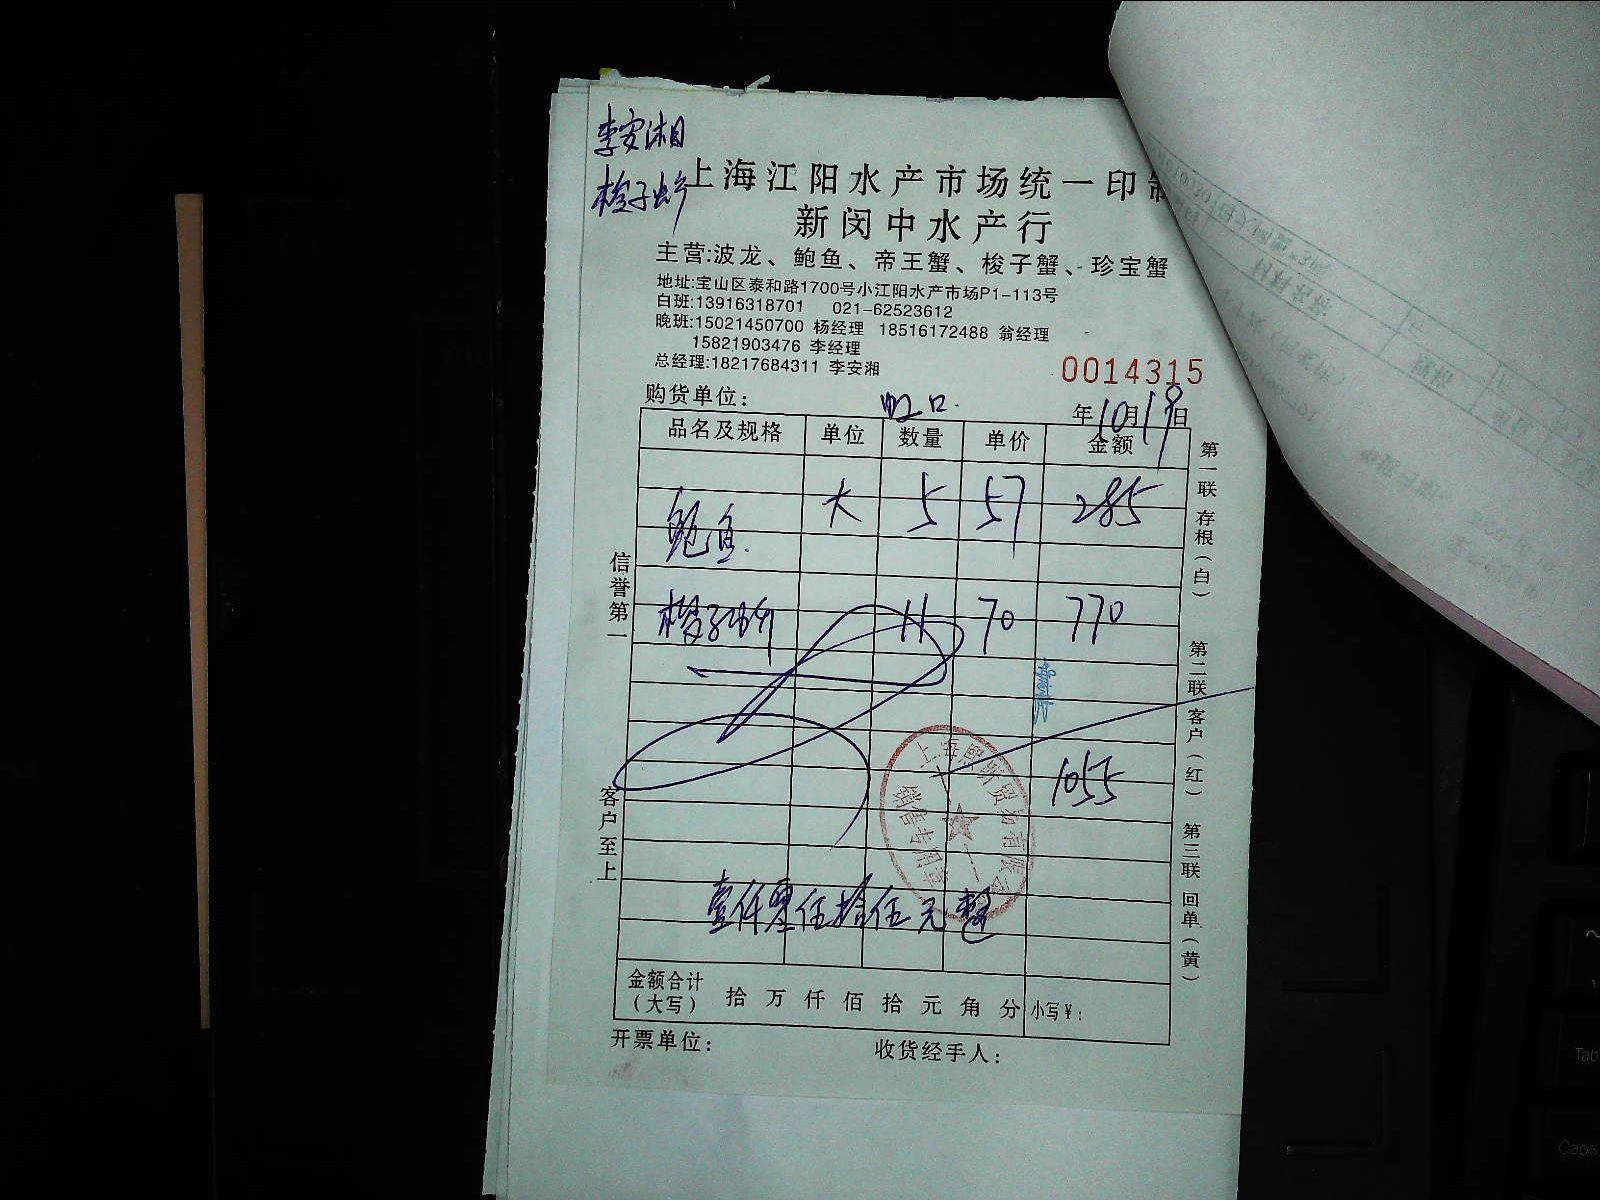 李安湘
梭子蟹
上海江阳水产市场统一印制
新闵中水产行
主营:波龙、鲍鱼、帝王蟹、梭子蟹、珍宝蟹
地址:宝山区泰和路1700号小江阳水产市场P1-113号
白班:13916318701 021-62523612
晚班:15021450700 杨经理 18516172488 翁经理
15821903476 李经理
总经理:18217684311 李安湘
0014315
购货单位: 虹口.
年10月19日
品名及规格 单位 数量 单价 金额
鲍鱼. 大 5 57 285
梭子蟹 11 70 770
1055
壹仟零伍拾伍元整
金额合计
(大写) 拾 万 仟 佰 拾 元 角 分 小写¥:
开票单位: 收货经手人:
信誉第一
客户至上
第一联 存根(白)
第二联 客户(红)
第三联 回单(黄)
销售专用章
Tab
Caps